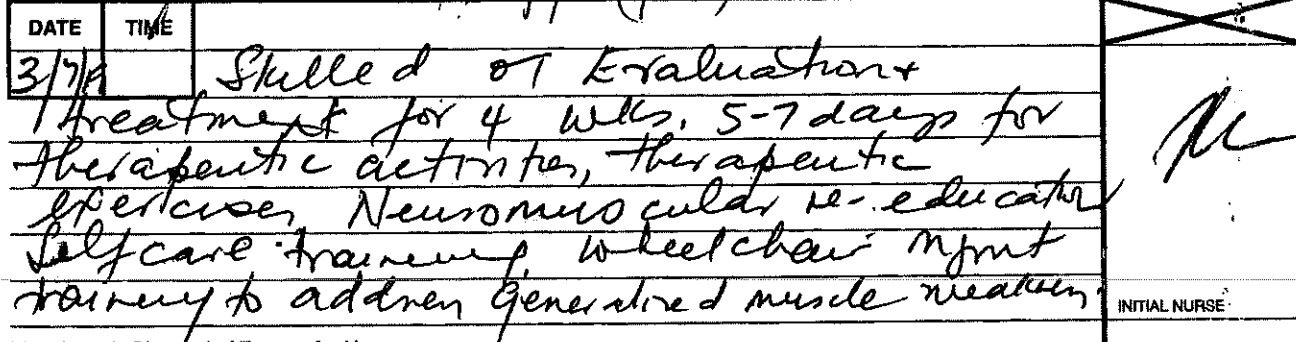 DATE TIME
3/7/ Skilled OT Evaluation +
treatment for 4 wks, 5-7 days for
therapeutic activities, therapeutic
exercises, Neuromuscular re-education
Self care training, wheelchair mgmt
training to address generalized muscle weakness.
INITIAL NURSE